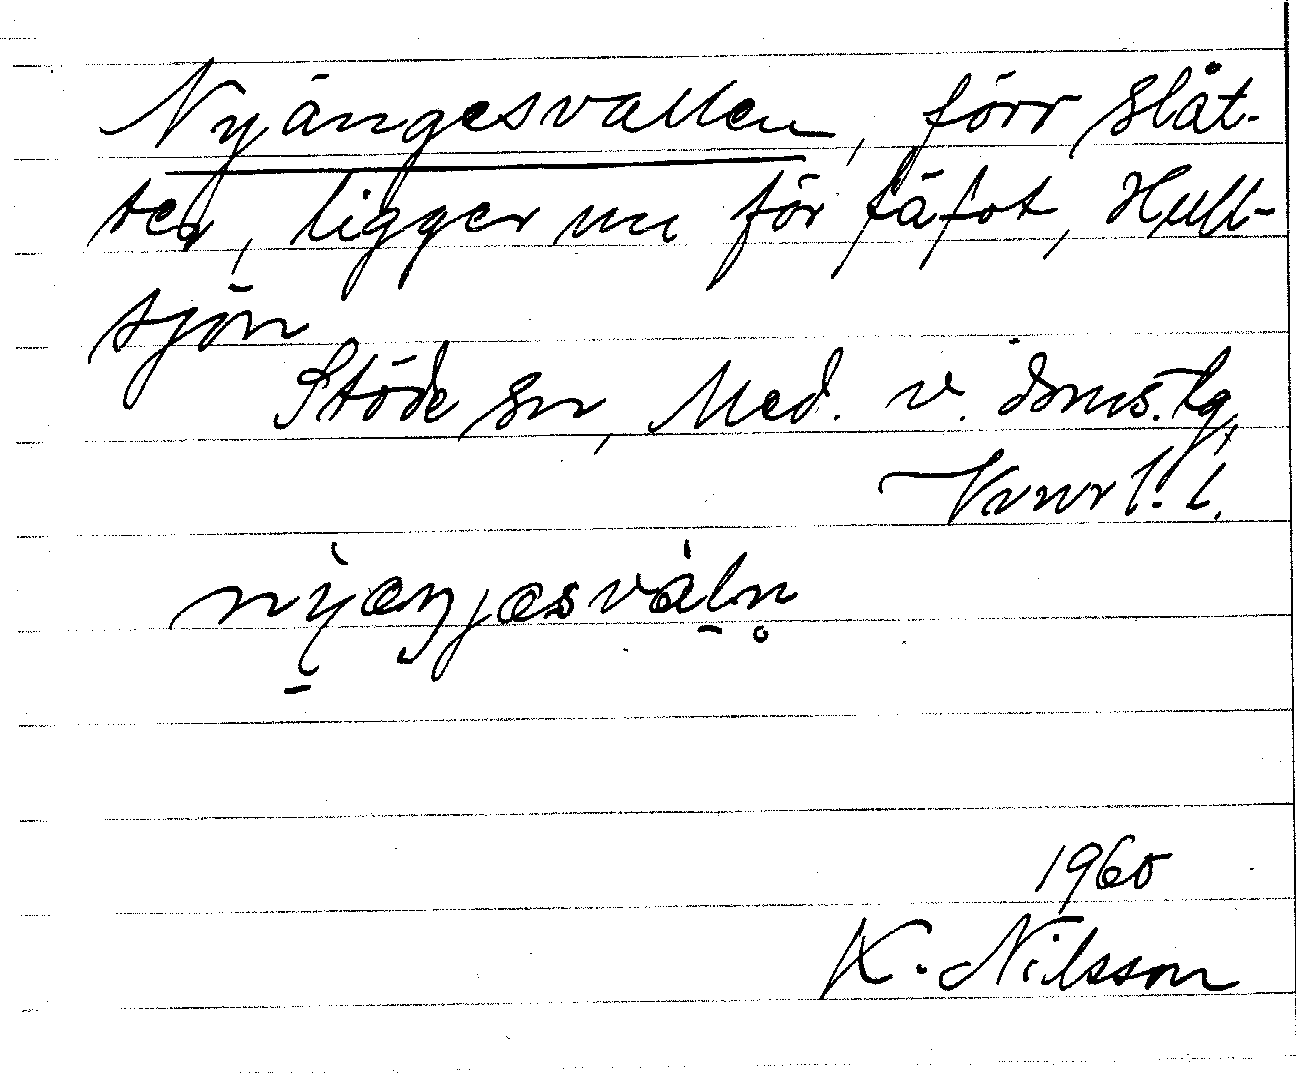 Nyängesvallen, förr slåt-
ter, ligger nu för fäfot, Hull-
sjön
Stöde sn, Med. v. doms. tg,
Vnrl. l.
nỳæŋjæsvàln̥
1960
K. Nilsson